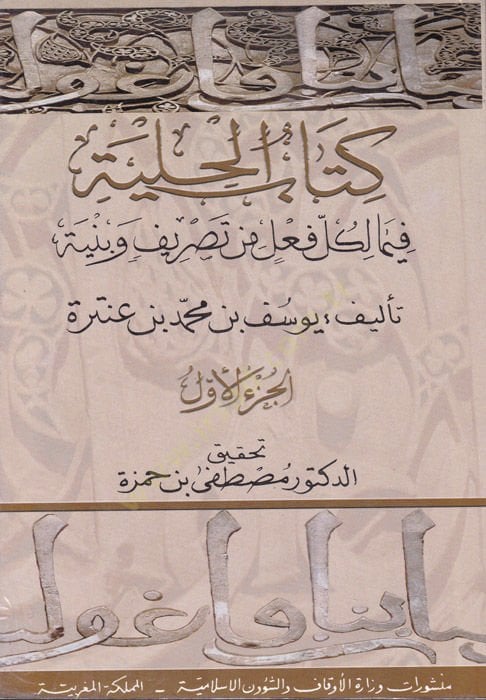 كِتَابُ الحِليَةِ
فِيمَا لِكُلِّ فِعْلٍ مِن تَصْرِيفٍ وَبِنْيَةٍ
تأليف : يوسُف بن محمّد بن عنترة
الجُزءُ الأوّلُ
تحقيق
الدكتور مُصْطفى بن حمزة
منشورات وزارة الأوقاف والشؤون الإسلامية - المملكة المغربية